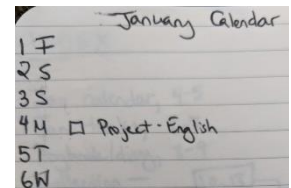 January Calendar
1 F
2 S
3 S
4 M □ Project - English
5 T
6 W